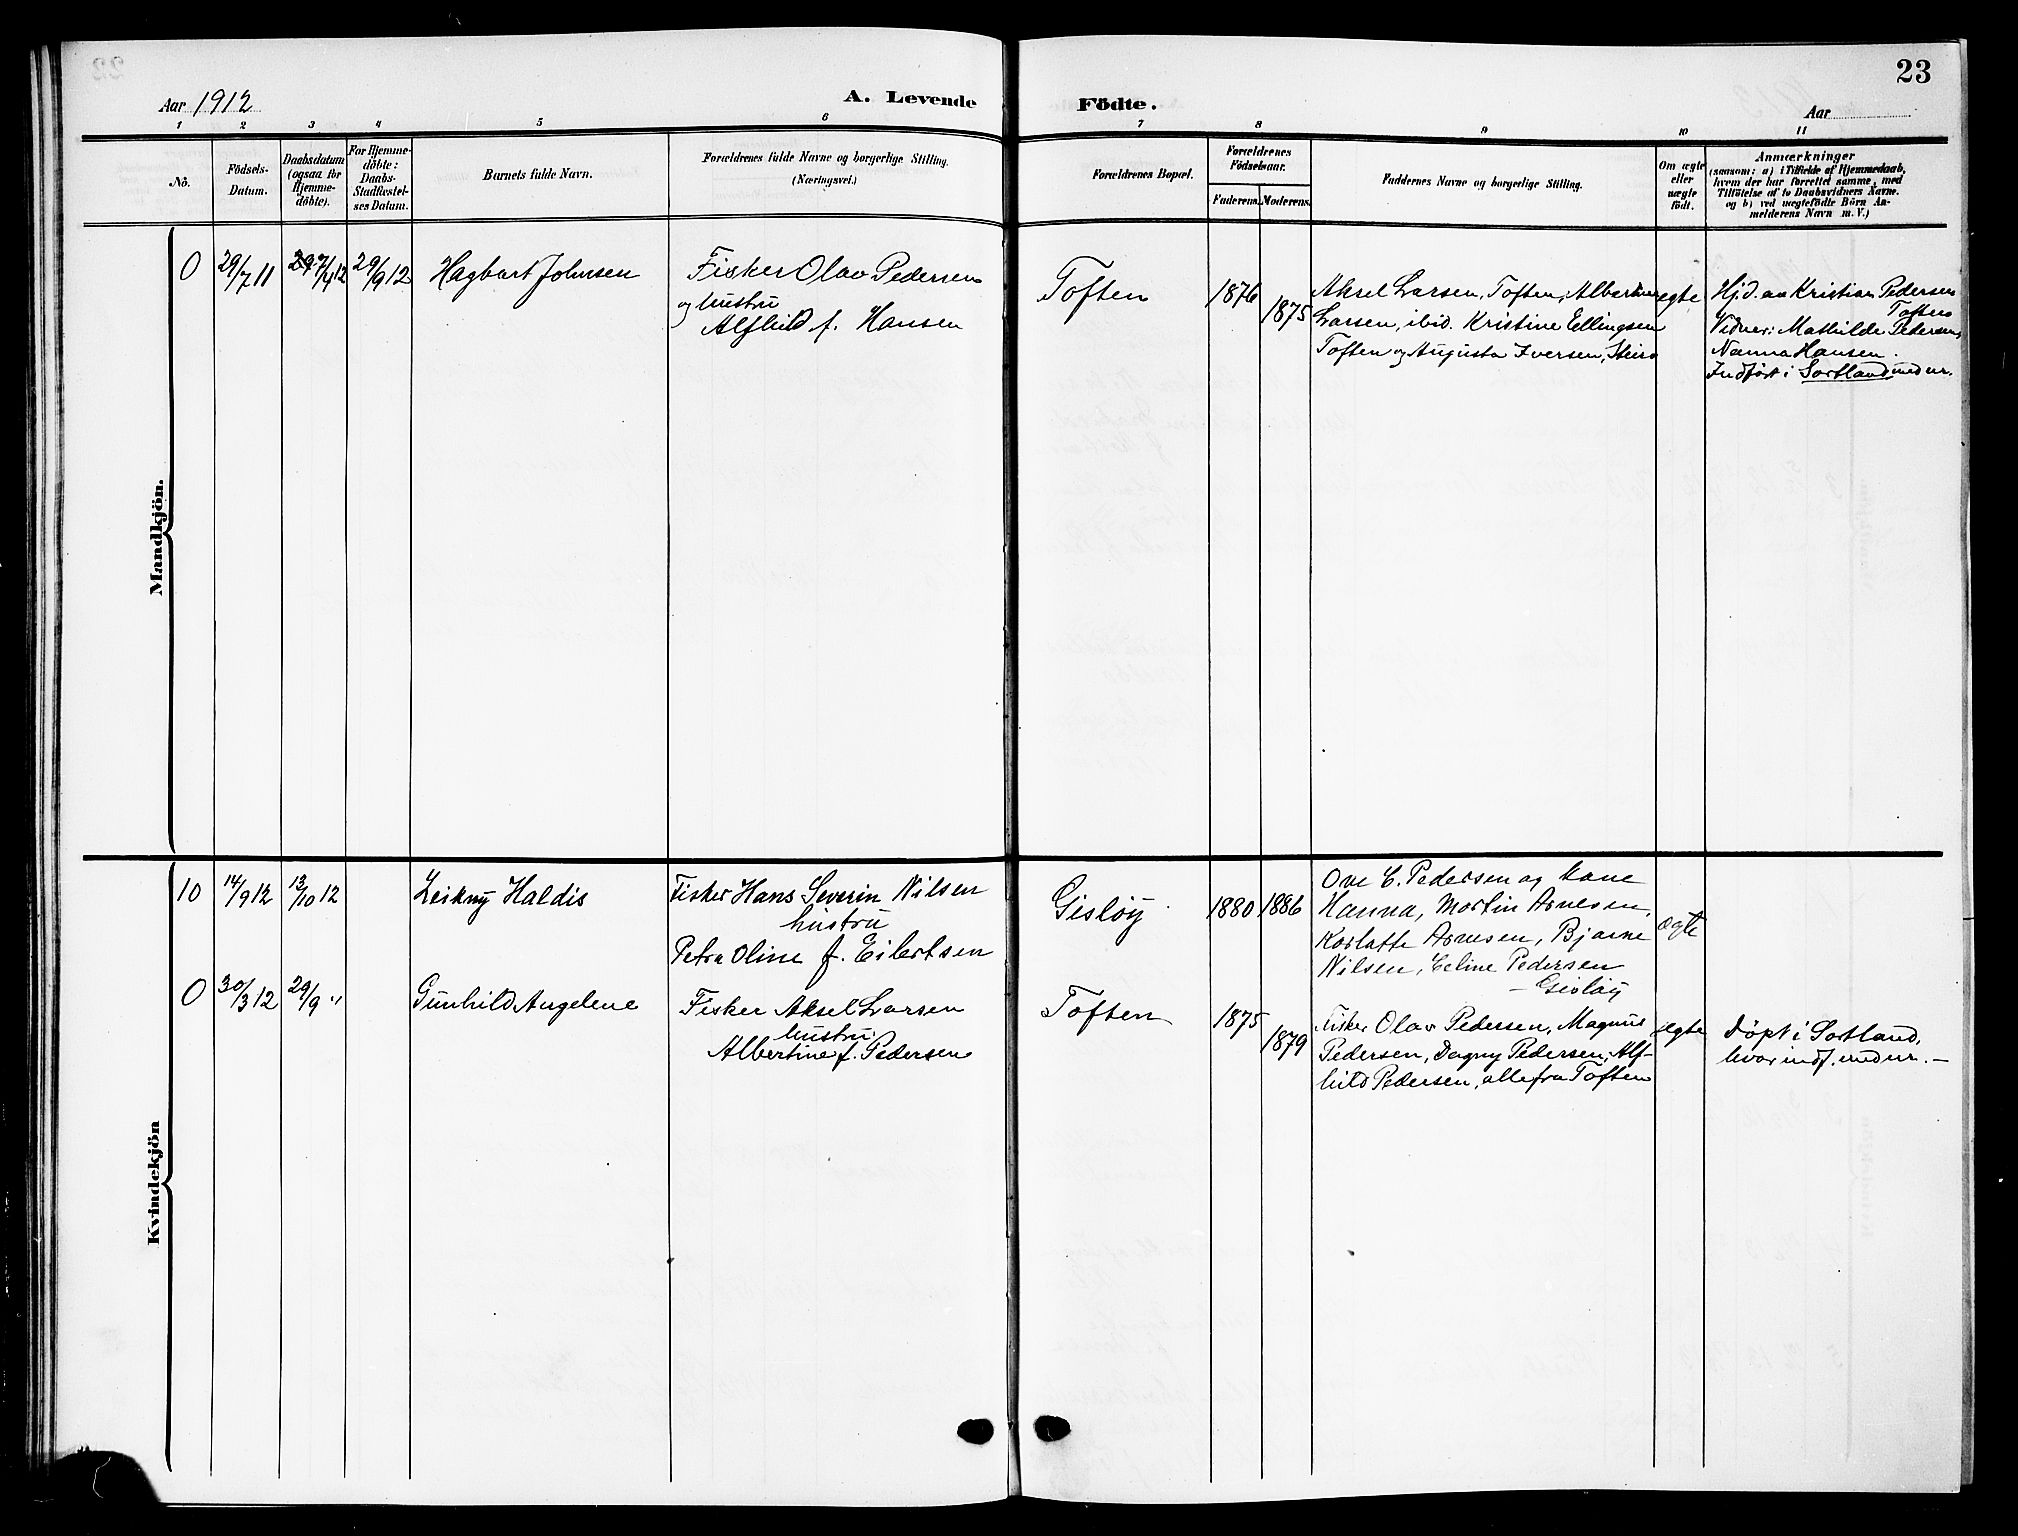 23
Aar 1912
A. Levende
Födte.
Aar
1 2 3 4 5 6 7 8 9 10 11
No.
Födsels-
Datum.
Daabsdatum
(ogsaa for
Hjemme-
döbte).
For Hjemme-
döbte:
Daabs-
Stadfæstel-
ses Datum.
Barnets fulde Navn.
Forældrenes fulde Navne og borgerlige Stilling.
(Næringsvei.)
Forældrenes Bopæl.
Forældrenes
Födselsaar.
Faderens. Moderens.
Faddernes Navne og borgerlige Stilling.
Om ægte
eller
uægte
födt.
Anmærkninger
(saasom: a) i Tilfælde af Hjemmedaab,
hvem der har forrettet samme, med
Tilföielse af to Daabsvidners Navne.
og b) ved uægtefödte Börn An-
melderens Navn m. V.)
Mandkjön.
0 29/7 11 7/4 12 29/9 12 Hagbart Johnsen
Fisker Olav Pedersen
og hustru
Alfhild f. Hansen
Toften
1876
1875
Aksel Larsen, Toften, Albertine
Larsen, ibid. Kristine Ellingsen
Toften og Augusta Iversen, Steiro
egte
Hj.d. av Kristian Pedersen
Toften
Vidner: Mathilde Pedersen,
Nanna Hansen.
Indført i Sortland under nr.
Kvindekjön
10 14/9 12 13/10 12 Leikny Haldis
Fisker Hans Severin Nilsen
hustru
Petra Oline f. Eilertsen
Gisløy
1880 1886
Ove C. Pedersen og kone
Hanna, Martin Arnesen,
Karlotte Arnesen, Bjarne
Nilsen, Celine Pedersen
– Gisløy
ægte
0 30/3 12 29/9 " Gunhild Angelene
Fisker Aksel Larsen
hustru
Albertine f. Pedersen
Toften
1875
1879
Fisker Olav Pedersen, Magnus
Pedersen, Dagny Pedersen, Alf-
hild Pedersen, alle fra Toften
ægte
Døpt i Sortland,
hvor indf. under nr. –